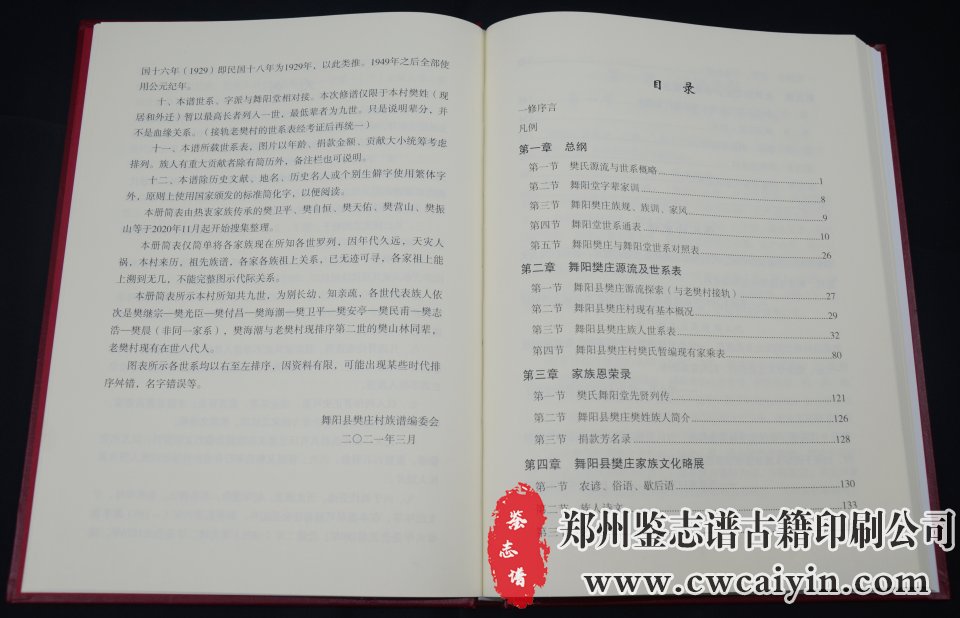 国十六年（1929）即民国十八年为1929年，以此类推。1949年之后全部使
用公元纪年。
十、本谱世系、字派与舞阳堂相对接。本次修谱仅限于本村樊姓（现
居和外迁）暂以最高长者列入一世，最低辈者为九世。只是说明辈分，并
不是血缘关系。（接轨老樊村的世系表经考证后再统一）
十一、本谱所载世系表，图片以年龄、捐款金额、贡献大小统筹考虑
排列。族人有重大贡献者除有简历外，备注栏也可说明。
十二、本谱除历史文献、地名、历史名人或个别生僻字使用繁体字
外，原则上使用国家颁发的标准简化字，以便阅读。
本册简表由热衷家族传承的樊卫平、樊自恒、樊天佑、樊营山、樊振
山等于2020年11月起开始搜集整理。
本册简表仅简单将各家族现在所知各世罗列，因年代久远，天灾人
祸，本村来历，祖先族谱，各家各族祖上关系，已无迹可寻，各家祖上能
上溯到无几，不能完整图示代际关系。
本册简表所示本村所知共九世，为别长幼、知亲疏，各世代表族人依
次是樊继宗—樊光臣—樊付昌—樊海潮—樊卫平—樊安亭—樊民甫—樊志
浩—樊晨（非同一家系），樊海潮与老樊村现排序第二世的樊山林同辈，
老樊村现有在世八代人。
图表所示各世系均以右至左排序，因资料有限，可能出现某些时代排
序舛错，名字错误等。
舞阳县樊庄村族谱编委会
二〇二一年三月
目 录
一修序言
凡例
第一章 总纲
第一节 樊氏源流与世系概略 1
第二节 舞阳堂字辈家训 8
第三节 舞阳樊庄族规、族训、家风 9
第四节 舞阳堂世系通表 10
第五节 舞阳樊庄与舞阳堂世系对照表 26
第二章 舞阳樊庄源流及世系表
第一节 舞阳县樊庄源流探索（与老樊村接轨） 27
第二节 舞阳县樊庄村现有基本概况 29
第三节 舞阳县樊庄族人世系表 32
第四节 舞阳县樊庄村樊氏暂编现有家乘表 80
第三章 家族恩荣录
第一节 樊氏舞阳堂先贤列传 121
第二节 舞阳县樊庄樊姓族人简介 126
第三节 捐款芳名录 128
第四章 舞阳县樊庄家族文化略展
第一节 农谚、俗语、歇后语 130
第二节 族人诗文 133
鉴志谱
郑州鉴志谱古籍印刷公司
www.cwcaiyin.com